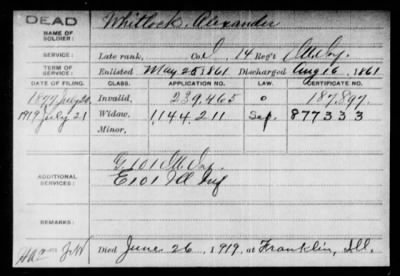 DEAD
NAME OF SOLDIER: Whitlock, Alexander
SERVICE: Late rank, Co. J, 14 Reg't Ills Inf.
TERM OF SERVICE: Enlisted May 25, 1861 Discharged Aug 6, 1861
DATE OF FILING. CLASS. APPLICATION NO. LAW. CERTIFICATE NO.
Invalid, 239,465 0 187,897.
1919 July 21 Widow, 1144211 Sep. 877333
Minor,
ADDITIONAL SERVICES: G 101 Ill Inf
E 101 Ill Inf
REMARKS:
Died June 26, 1919, at Franklin, Ill.